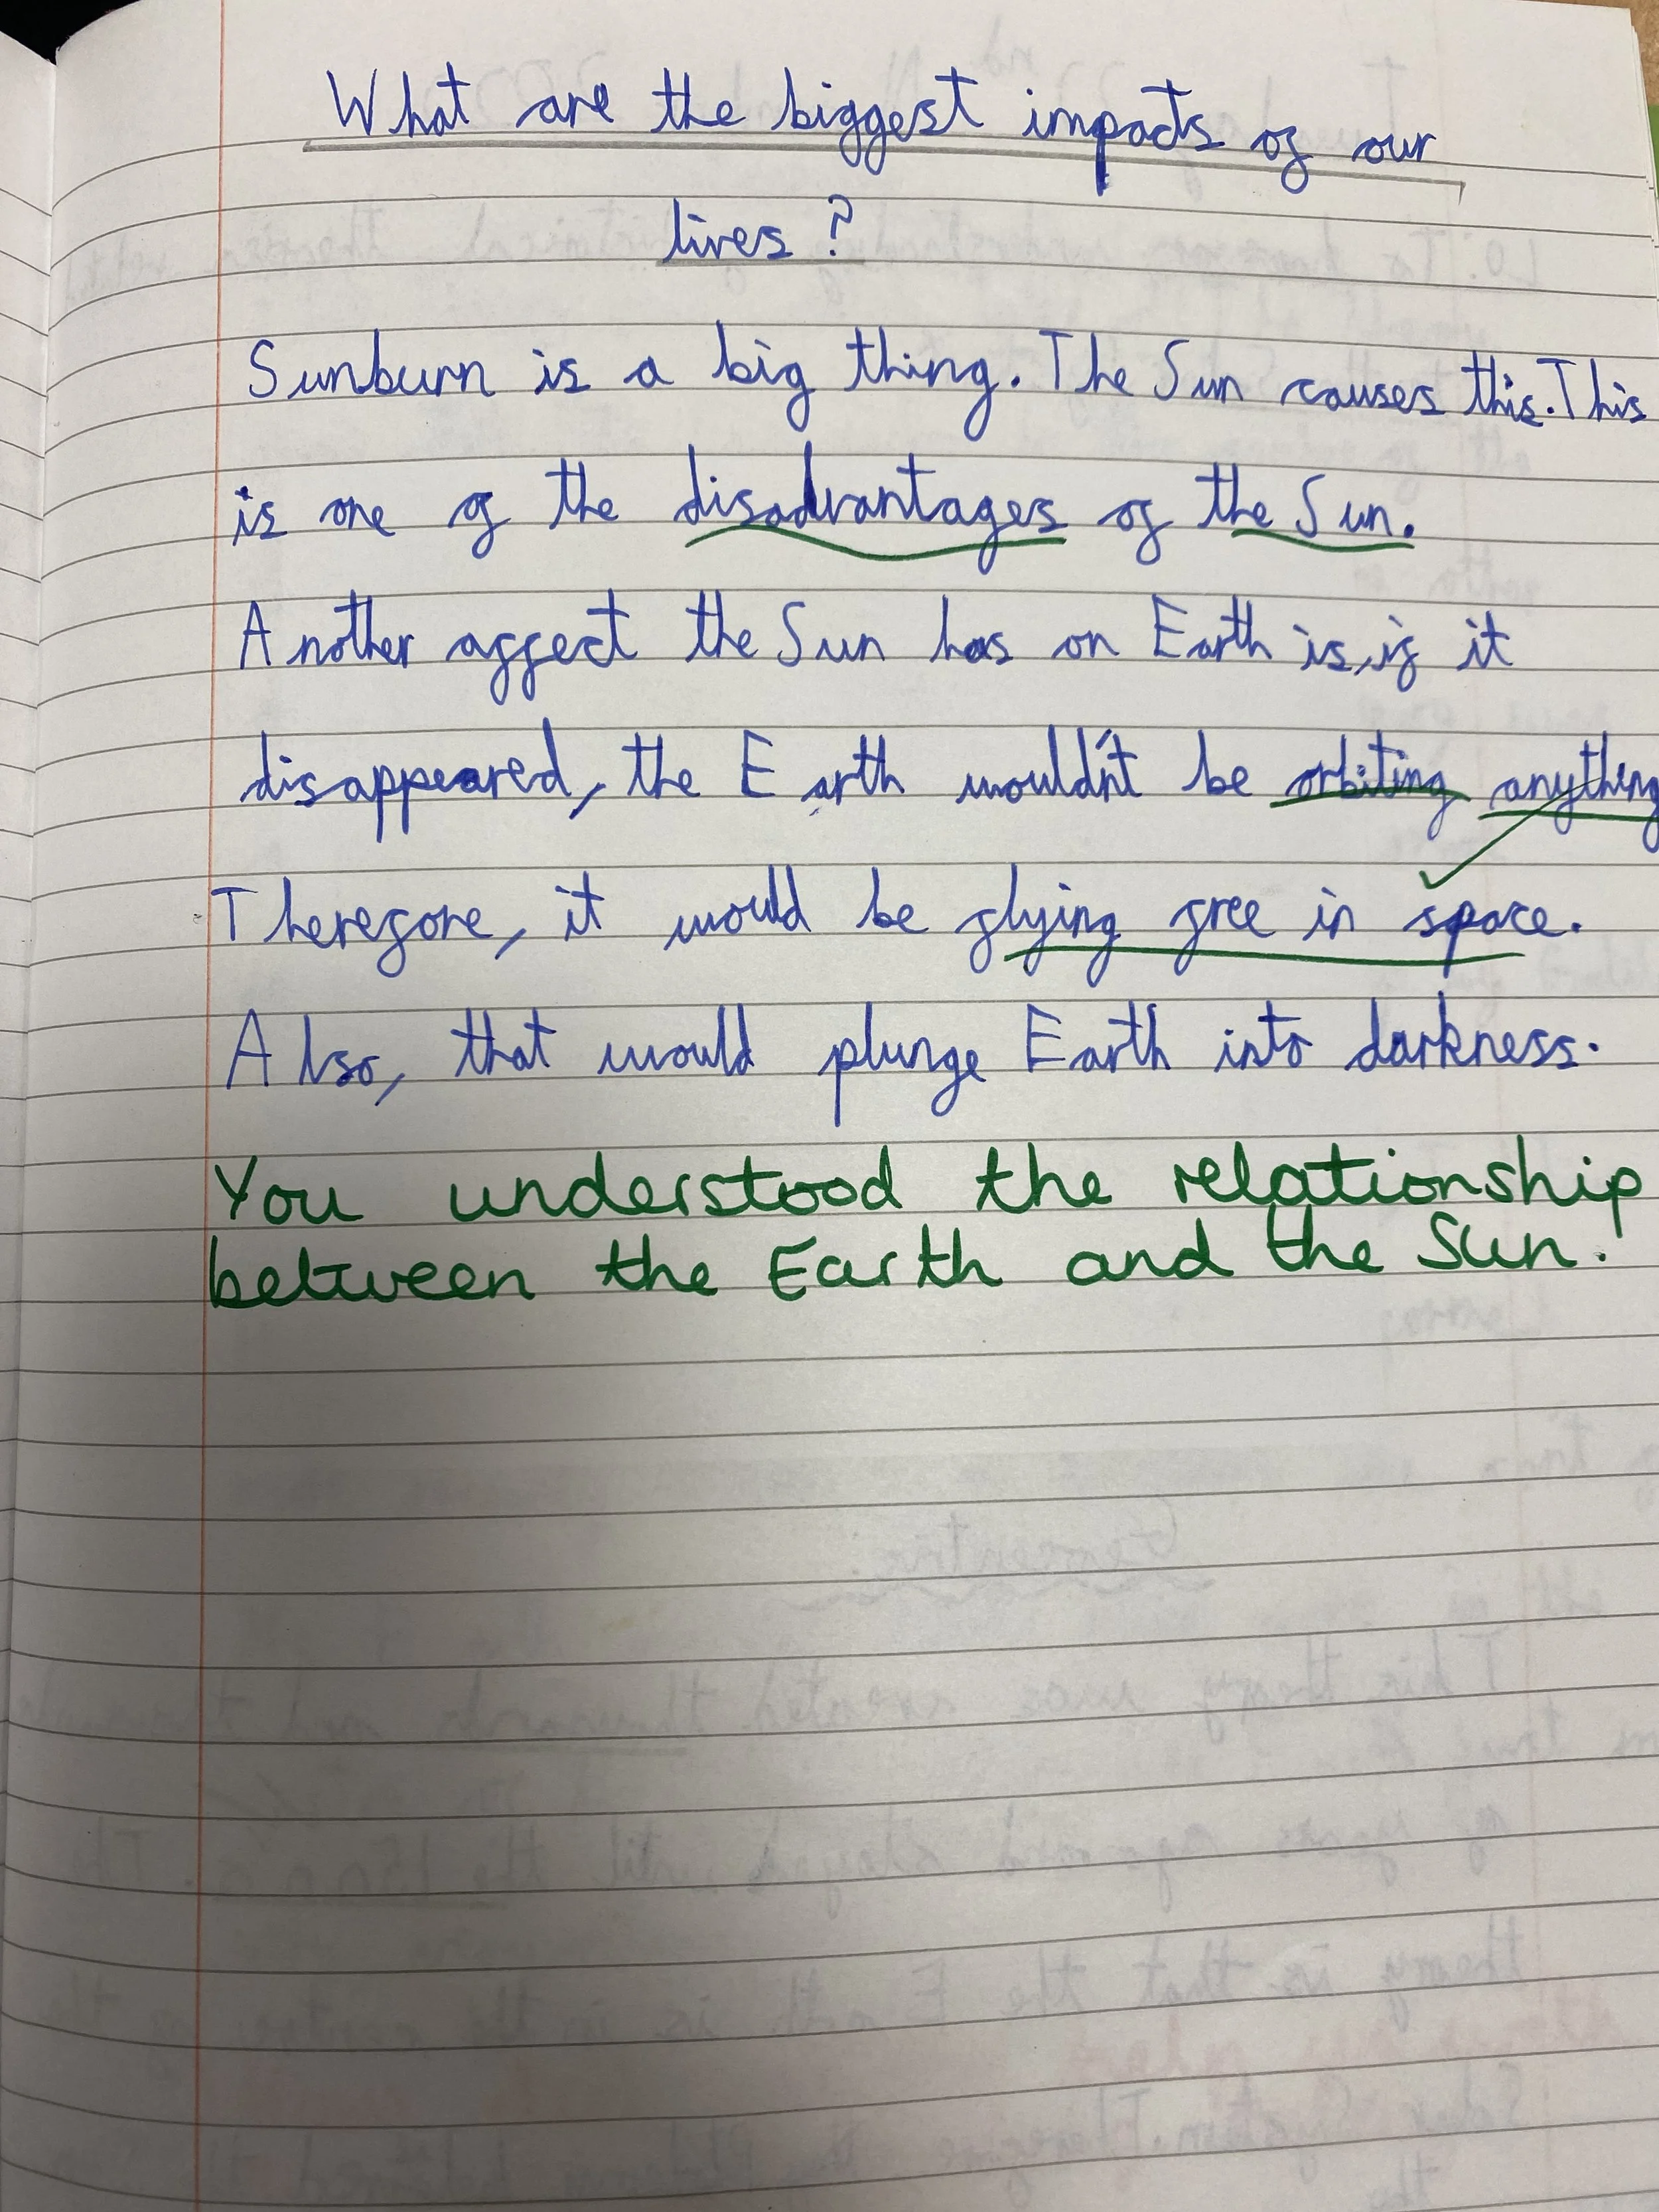 What are the biggest impacts of our
lives?
Sunburn is a big thing. The Sun causes this. This
is one of the disadvantages of the Sun.
Another affect the Sun has on Earth is, if it
disappeared, the Earth wouldn't be orbiting anything
Therefore, it would be flying free in space.
Also, that would plunge Earth into darkness.
You understood the relationship
between the Earth and the Sun.